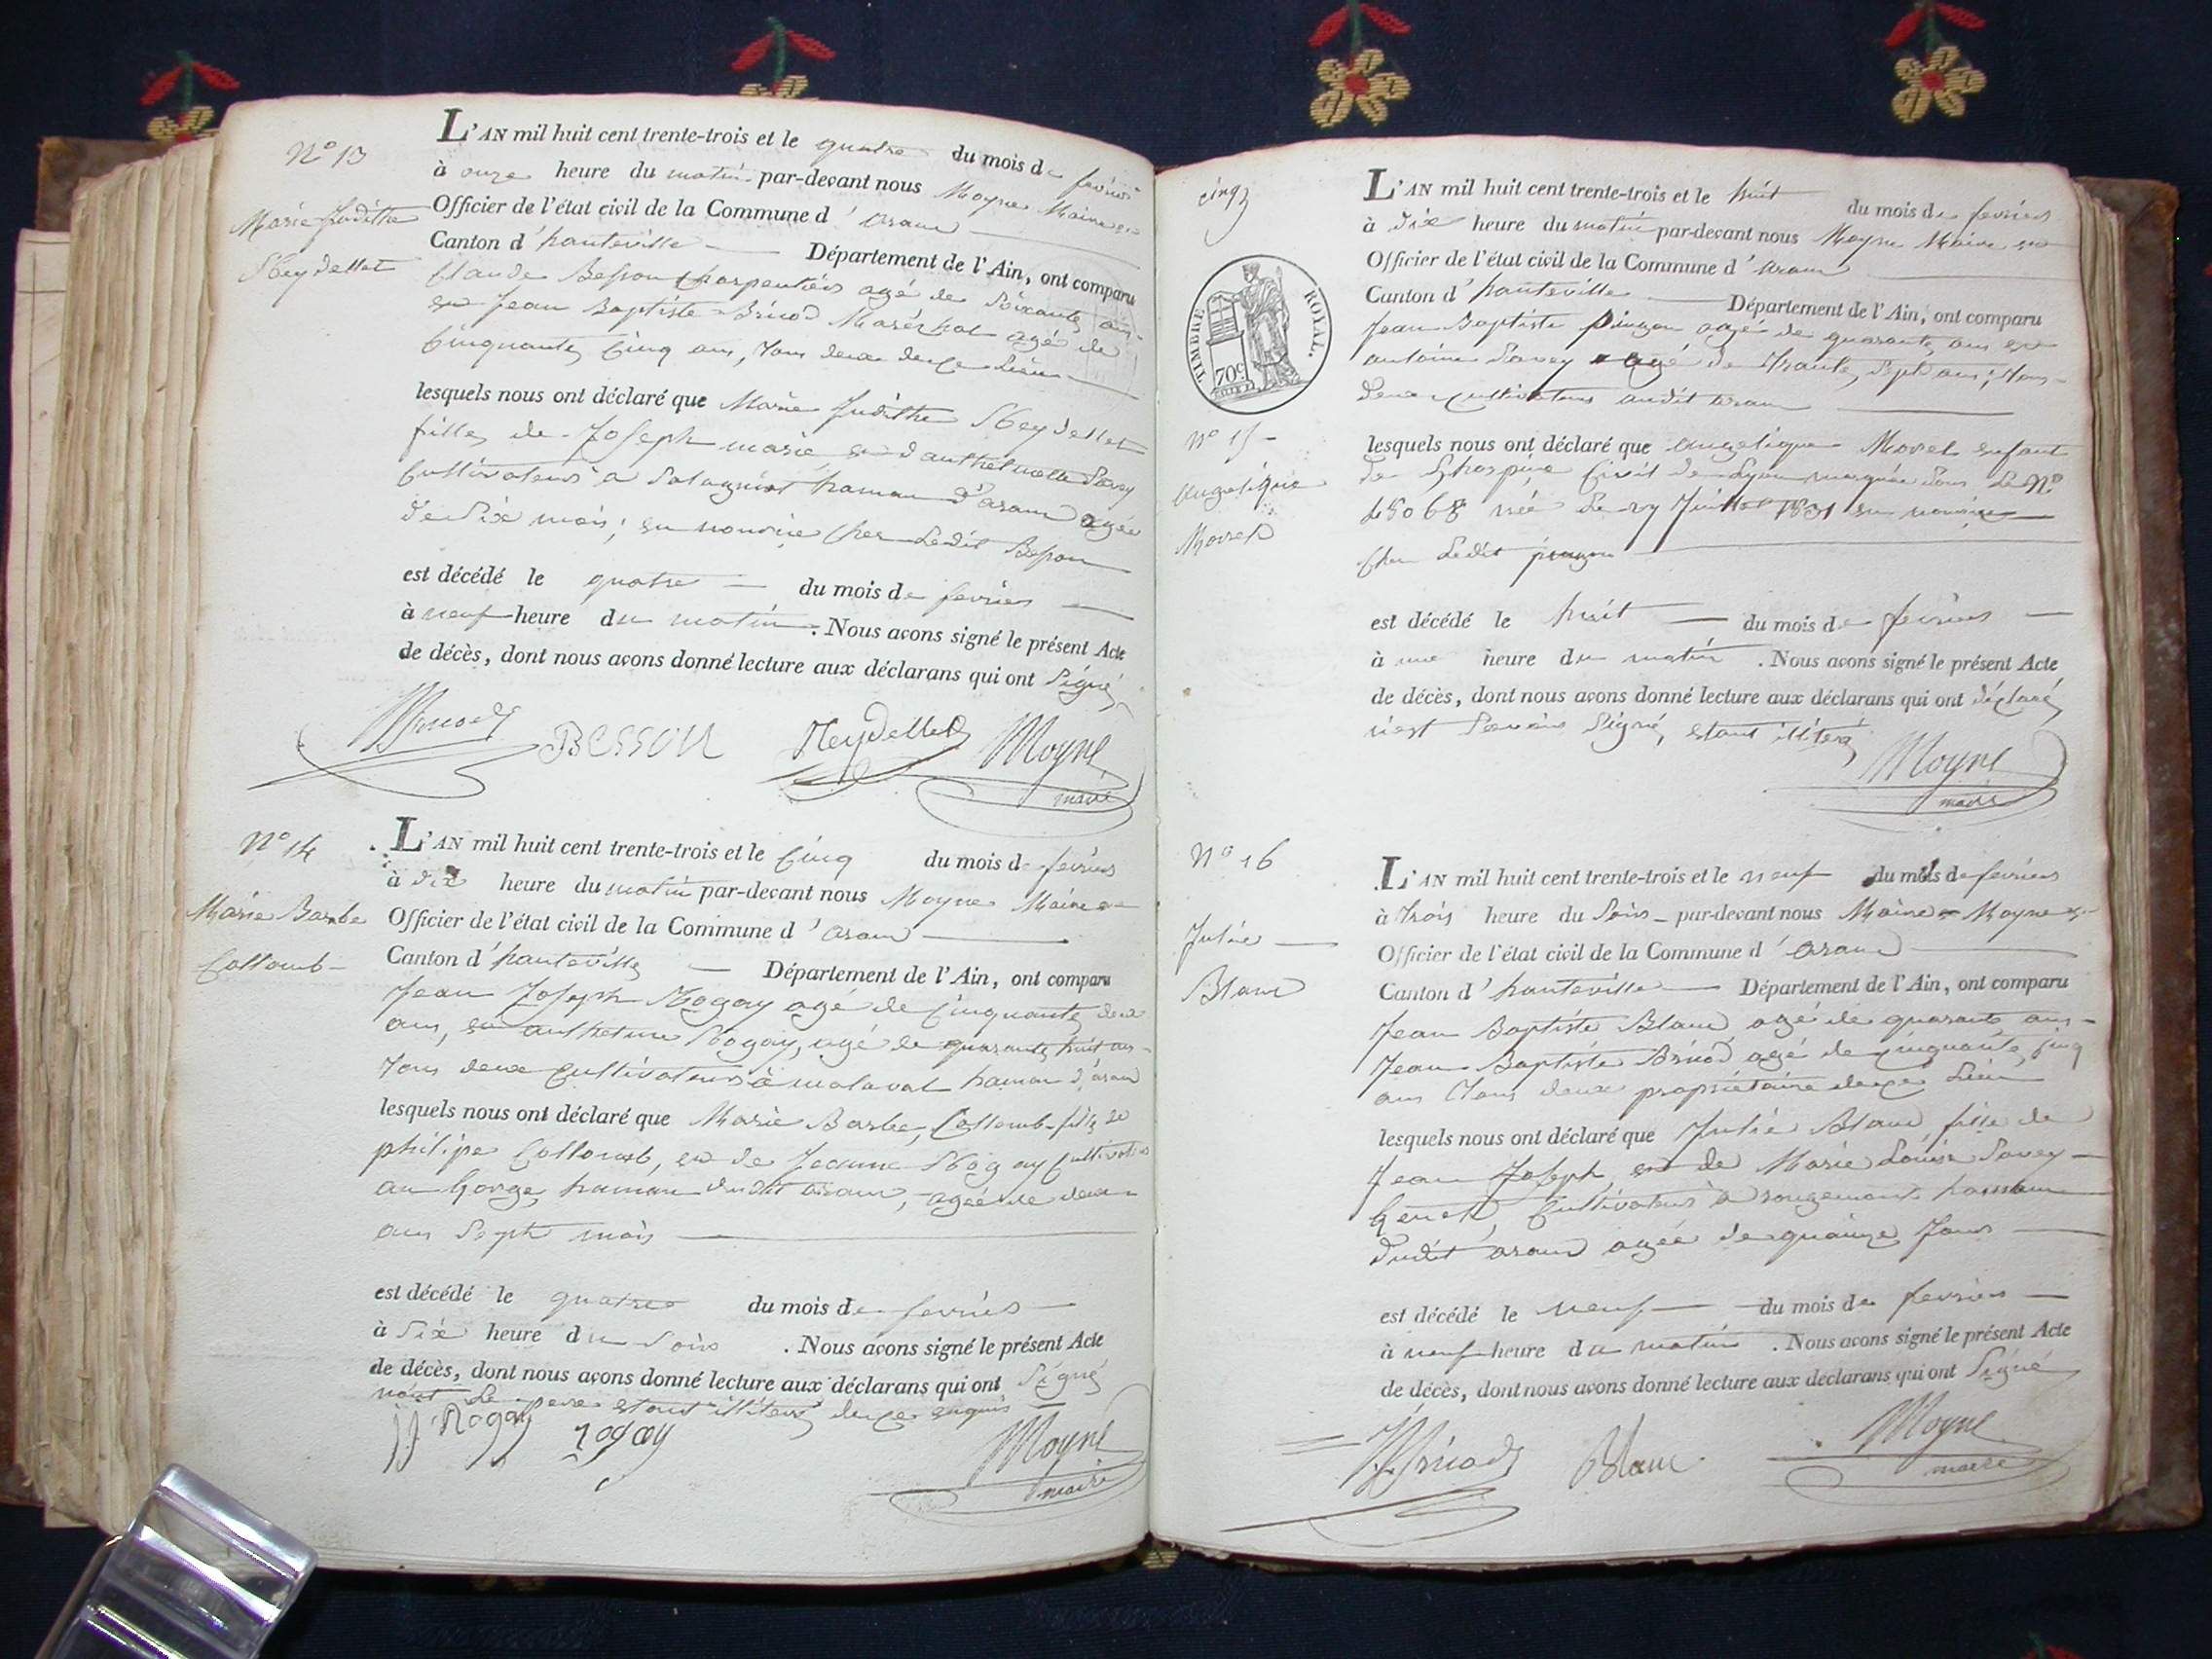 N° 13
Marie Judithe
Heydellet
L'AN mil huit cent trente-trois et le quatre du mois de fevrier
à onze heure du matin par-devant nous Moyne Maire
Officier de l'état civil de la Commune d'aranc
Canton d'hauteville Département de l'Ain, ont comparu
Claude Besson Charpentier agé de Soixante ans
et Jean Baptiste Brucod Maréchal agé de
Cinquante Cinq ans, tous deux de ce Lieu
lesquels nous ont déclaré que Marie Judithe Heydellet
fille de Joseph marie et d'anthelmette Savey
Cultivateurs a hamau d'aranc agée
de Six mois; en nourice Chez Ledit Besson
est décédé le quatre du mois de fevrier
à neuf heure du matin. Nous avons signé le présent Acte
de décès, dont nous avons donné lecture aux déclarans qui ont Signé
BESSON Heydellet Moyne
maire
N° 14
Marie Barbe
Collomb
L'AN mil huit cent trente-trois et le Cinq du mois de fevrier
à dix heure du matin par-devant nous Moyne Maire
Officier de l'état civil de la Commune d'aranc
Canton d'hauteville Département de l'Ain, ont comparu
Jean Joseph Rogay agé de Cinquante deux
ans, et anthelme Rogay, agé de quarante huit ans
tous deux Cultivateurs à malaval hamau d'aranc
lesquels nous ont déclaré que Marie Barbe Collomb fille de
philipe Collomb, et de Jeanne Rogay Cultivateurs
au Gorge hamau dudit aranc, agée de deux
ans Sept mois
est décédé le quatre du mois de fevrier
à Six heure du Soir. Nous avons signé le présent Acte
de décès, dont nous avons donné lecture aux déclarans qui ont Signé
non Le pere etant illiteré de ce enquis
jj Rogay rogay Moyne
maire
cinq
TIMBRE ROYAL.
70c
N° 15
Angelique
Morel
L'AN mil huit cent trente-trois et le huit du mois de fevrier
à dix heure du matin par-devant nous Moyne Maire
Officier de l'état civil de la Commune d'aranc
Canton d'hauteville Département de l'Ain, ont comparu
Jean Baptiste pingon agé de quarante ans et
antoine Savey agé de trante Sept ans; tous
deux cultivateurs audit aranc
lesquels nous ont déclaré que angelique Morel enfant
de L'hospice Civil de Lyon marquée Sous Le N°
née Le 27 Juillet 1831 en nourice
Chez Ledit pingon
est décédé le huit du mois de fevrier
à une heure du matin. Nous avons signé le présent Acte
de décès, dont nous avons donné lecture aux déclarans qui ont déclaré
Signé, etant illiteré
Moyne
maire
N° 16
Julie
Blanc
L'AN mil huit cent trente-trois et le neuf du mois de fevrier
à trois heure du Soir par-devant nous Maire Moyne
Officier de l'état civil de la Commune d'aranc
Canton d'hauteville Département de l'Ain, ont comparu
Jean Baptiste Blanc agé de quarante ans
Jean Baptiste Brucod agé de cinquante cinq
ans tous deux propriétaire de ce Lieu
lesquels nous ont déclaré que Julie Blanc fille de
Jean Joseph, et de Marie Louise Savey
Cultivateurs à rougemont hamau
dudit aranc agée de quinze Jours
est décédé le neuf du mois de fevrier
à neuf heure du matin. Nous avons signé le présent Acte
de décès, dont nous avons donné lecture aux déclarans qui ont Signé
Blanc Moyne
maire